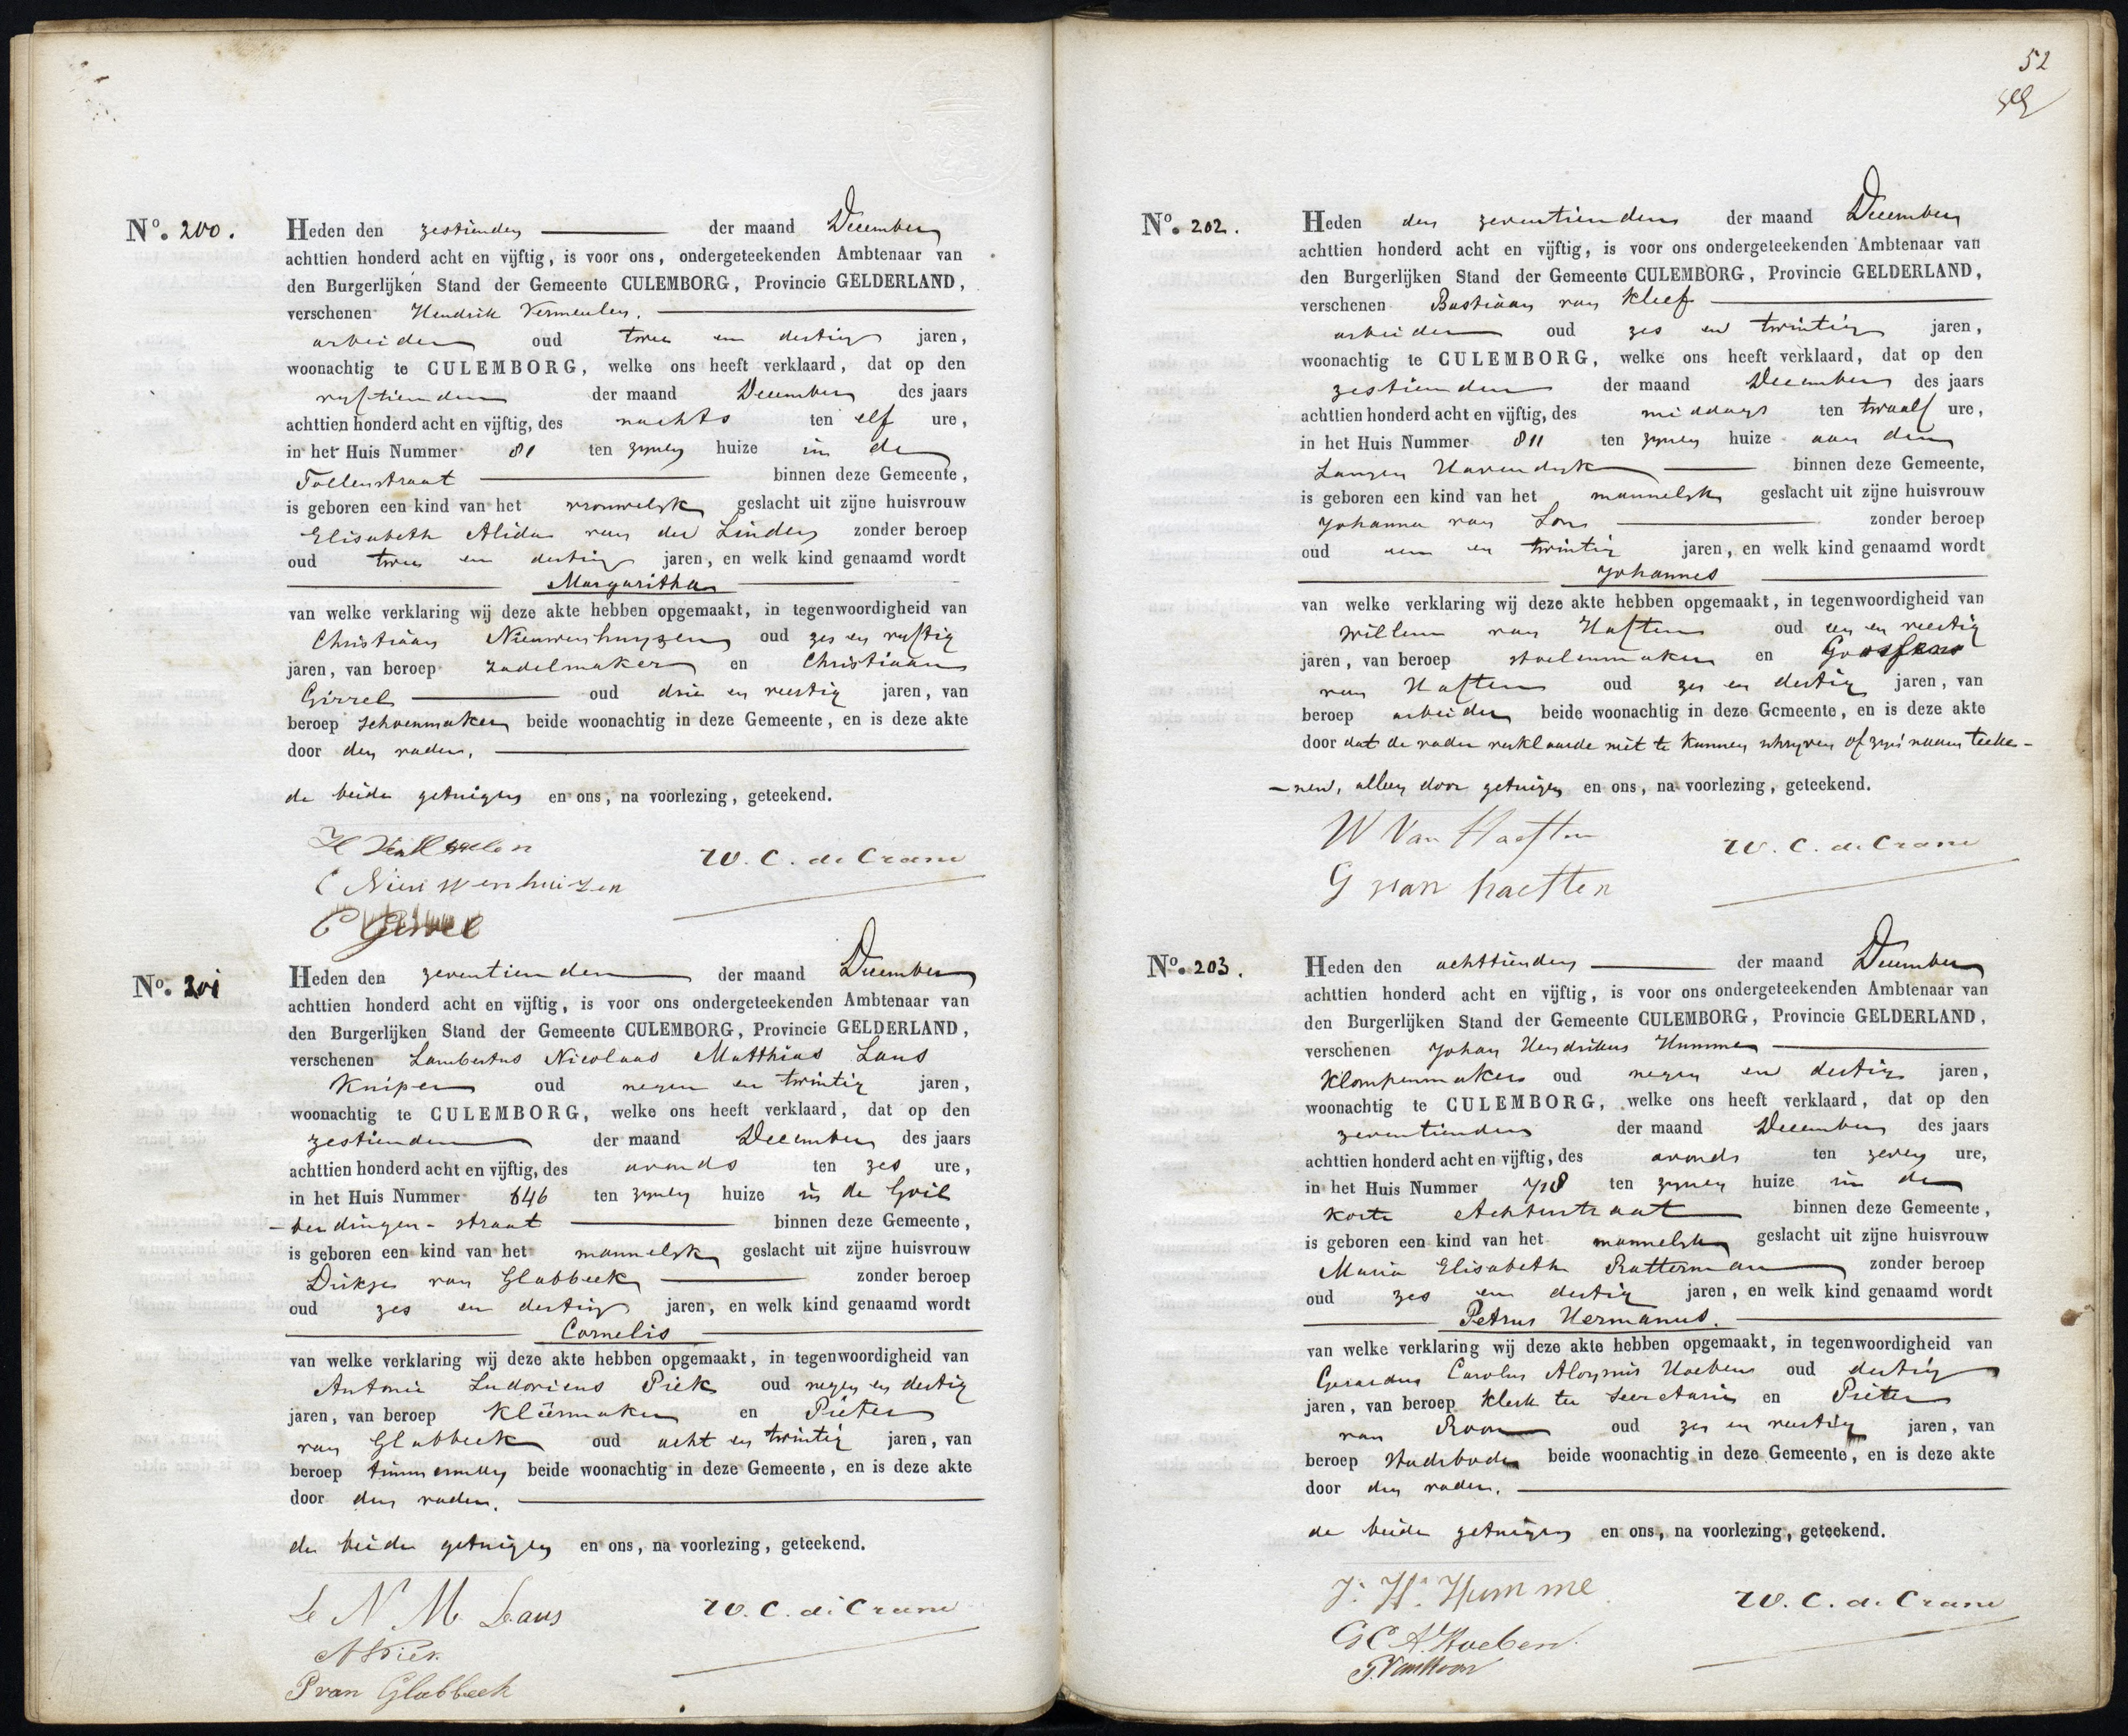 No. 200.
Heden den zestienden der maand December
achttien honderd acht en vijftig, is voor ons, ondergeteekenden Ambtenaar van
den Burgerlijken Stand der Gemeente CULEMBORG, Provincie GELDERLAND,
verschenen Hendrik Vermeulen,
arbeider oud twee en dertig jaren,
woonachtig te CULEMBORG, welke ons heeft verklaard, dat op den
vijftienden der maand December des jaars
achttien honderd acht en vijftig, des nachts ten elf ure,
in het Huis Nummer 81 ten zijnen huize in de
Tollenstraat binnen deze Gemeente,
is geboren een kind van het vrouwelijk geslacht uit zijne huisvrouw
Elisabeth Alida van der Linden zonder beroep
oud twee en dertig jaren, en welk kind genaamd wordt
Margaritha
van welke verklaring wij deze akte hebben opgemaakt, in tegenwoordigheid van
Christiaan Nieuwenhuyzen oud zes en vyftig
jaren, van beroep zadelmaker en Christiaan
Girrel oud drie en veertig jaren, van
beroep schoenmaker beide woonachtig in deze Gemeente, en is deze akte
door den vader,
de beide getuigen en ons, na voorlezing, geteekend.
H Vermeulen
W. C. de Crane
C Nieuwenhuizen
C Girrel
No. 201
Heden den zeventienden der maand December
achttien honderd acht en vijftig, is voor ons ondergeteekenden Ambtenaar van
den Burgerlijken Stand der Gemeente CULEMBORG, Provincie GELDERLAND,
verschenen Lambertus Nicolaas Matthias Laus
Kuiper oud negen en twintig jaren,
woonachtig te CULEMBORG, welke ons heeft verklaard, dat op den
zestienden der maand December des jaars
achttien honderd acht en vijftig, des avonds ten zes ure,
in het Huis Nummer 646 ten zijnen huize in de Goil
-berdingen-straat binnen deze Gemeente,
is geboren een kind van het mannelijk geslacht uit zijne huisvrouw
Dirkje van Glabbeek zonder beroep
oud zes en dertig jaren, en welk kind genaamd wordt
Cornelis
van welke verklaring wij deze akte hebben opgemaakt, in tegenwoordigheid van
Antonie Ludovicus Piek oud negen en dertig
jaren, van beroep kleermaker en Pieter
van Glabbeek oud acht en twintig jaren, van
beroep timmerman beide woonachtig in deze Gemeente, en is deze akte
door den vader,
de beide getuigen en ons, na voorlezing, geteekend.
L N M Laus
W. C. de Crane
A Piek
P van Glabbeek
52
No. 202.
Heden den zeventienden der maand December
achttien honderd acht en vijftig, is voor ons ondergeteekenden Ambtenaar van
den Burgerlijken Stand der Gemeente CULEMBORG, Provincie GELDERLAND,
verschenen Bastiaan van Kleef
arbeider oud zes en twintig jaren,
woonachtig te CULEMBORG, welke ons heeft verklaard, dat op den
zestienden der maand December des jaars
achttien honderd acht en vijftig, des middags ten twaalf ure,
in het Huis Nummer 811 ten zijnen huize aan den
Langen Havendijk binnen deze Gemeente,
is geboren een kind van het mannelijk geslacht uit zijne huisvrouw
Johanna van zonder beroep
oud een en twintig jaren, en welk kind genaamd wordt
Johannes
van welke verklaring wij deze akte hebben opgemaakt, in tegenwoordigheid van
Willem van Haften oud een en veertig
jaren, van beroep stoelenmaker en
van Haften oud zes en dertig jaren, van
beroep arbeider beide woonachtig in deze Gemeente, en is deze akte
door dat de vader verklaarde niet te kunnen schrijven of zijn naam teeke-
-nen, alleen door getuigen en ons, na voorlezing, geteekend.
W Van Haeften
W. C. de Crane
G van haeften
No. 203.
Heden den achttienden der maand December
achttien honderd acht en vijftig, is voor ons ondergeteekenden Ambtenaar van
den Burgerlijken Stand der Gemeente CULEMBORG, Provincie GELDERLAND,
verschenen Johan Hendrikus Humme
Klompenmaker oud negen en dertig jaren,
woonachtig te CULEMBORG, welke ons heeft verklaard, dat op den
zeventienden der maand December des jaars
achttien honderd acht en vijftig, des avonds ten zeven ure,
in het Huis Nummer 718 ten zijnen huize in de
Korte Achterstraat binnen deze Gemeente,
is geboren een kind van het mannelijk geslacht uit zijne huisvrouw
Maria Elisabeth Ratterman zonder beroep
oud zes en dertig jaren, en welk kind genaamd wordt
Petrus Hermanus.
van welke verklaring wij deze akte hebben opgemaakt, in tegenwoordigheid van
Gerardus Carolus Aloysius Hoeben oud dertig
jaren, van beroep klerk ter Secretarie en Pieter
van Roon oud zes en veertig jaren, van
beroep stadsbode beide woonachtig in deze Gemeente, en is deze akte
door den vader,
de beide getuigen en ons, na voorlezing, geteekend.
J. H. Humme
W. C. de Crane
G C A Hoeben.
P. Van Roon